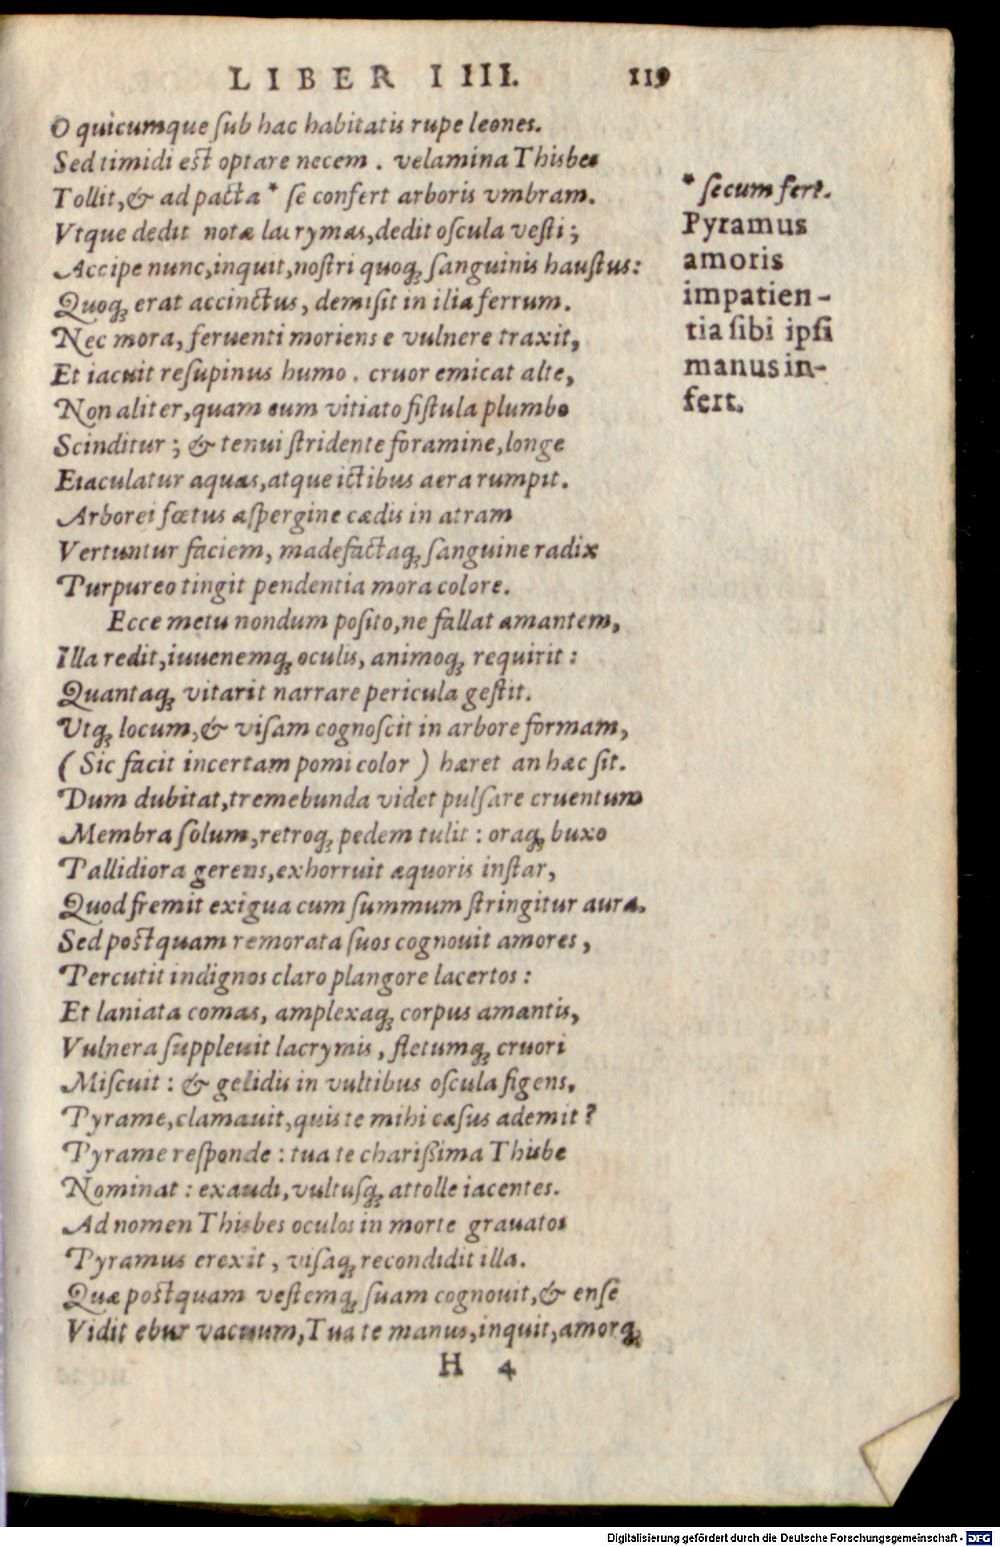 LIBER IIII. 119
O quicumque ſub hac habitatis rupe leones.
Sed timidi eſt optare necem . velamina Thisbes
Tollit, & ad pacta * ſe confert arboris vmbram.
Vtque dedit notæ lacrymas, dedit oſcula veſti ;
Accipe nunc, inquit, noſtri quoq; ſanguinis hauſtus:
Quoq; erat accinctus, demiſit in ilia ferrum.
Nec mora, feruenti moriens e vulnere traxit,
Et iacuit reſupinus humo . cruor emicat alte,
Non aliter, quam cum vitiato fiſtula plumbo
Scinditur ; & tenui ſtridente foramine, longe
Eiaculatur aquas, atque ictibus aera rumpit.
Arborei fœtus aſpergine cædis in atram
Vertuntur faciem, madefactaq; ſanguine radix
Purpureo tingit pendentia mora colore.
Ecce metu nondum poſito, ne fallat amantem,
Illa redit, iuuenemq; oculis, animoq; requirit :
Quantaq; vitarit narrare pericula geſtit.
Utq; locum, & viſam cognoſcit in arbore formam,
( Sic facit incertam pomi color ) hæret an hæc ſit.
Dum dubitat, tremebunda videt pulſare cruentum
Membra ſolum, retroq; pedem tulit : oraq; buxo
Pallidiora gerens, exhorruit æquoris inſtar,
Quod fremit exigua cum ſummum ſtringitur aura.
Sed poſtquam remorata ſuos cognouit amores,
Percutit indignos claro plangore lacertos :
Et laniata comas, amplexaq; corpus amantis,
Vulnera ſuppleuit lacrymis, fletumq; cruori
Miſcuit : & gelidis in vultibus oſcula figens,
Pyrame, clamauit, quis te mihi caſus ademit ?
Pyrame reſponde : tua te chariſſima Thisbe
Nominat : exaudi, vultuſq; attolle iacentes.
Ad nomen Thisbes oculos in morte grauatos
Pyramus erexit, viſaq; recondidit illa.
Quæ poſtquam veſtemq; ſuam cognouit, & enſe
Vidit ebur vacuum, Tua te manus, inquit, amorq;
H 4
* ſecum fert.
Pyramus
amoris
impatien-
tia ſibi ipſi
manus in-
fert.
Digitalisierung gefördert durch die Deutsche Forschungsgemeinschaft - DFG